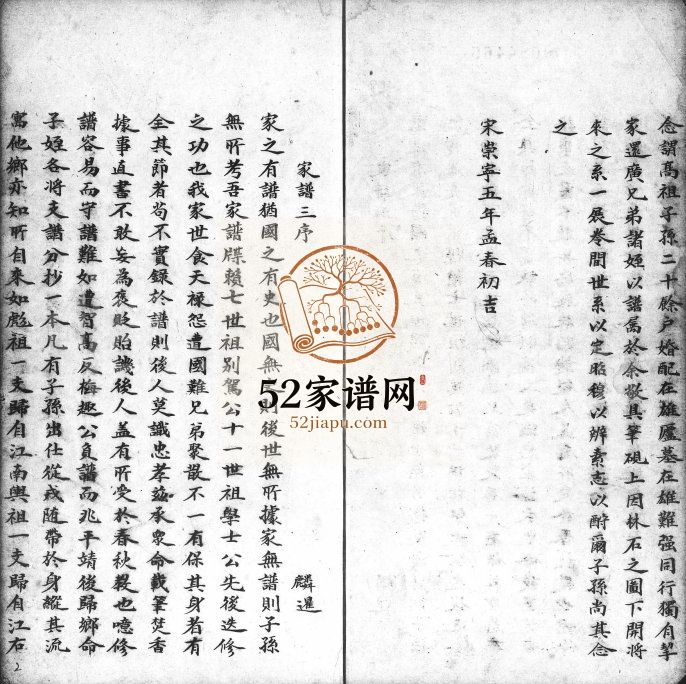 念謂高祖子孫二十餘戶婚配在雄廬墓在雄難强同行獨自挈
家還廣兄弟諸姪以譜属於余敬具筆硯上因林石之圖下開將
來之系一展卷間世系以定昭穆以辨素志以酧爾子孫尚其念
之
宋崇寧五年孟春初吉
家譜三序
麟暹
家之有譜猶國之有史也國無則後世無所據家無譜則子孫
無所考吾家譜牒賴七世祖別駕公十一世祖學士公先後迭修
之功也我家世食天禄怨遭國難兄弟聚散不一有保其身者有
全其節者苟不實録於譜則後人莫識忠孝兹承衆命載筆焚香
據事直書不敢妄為褒貶貽譏後人盖有所受於春秋也噫修
譜容易而守譜難如遭智高反梅趣公負譜而兆平靖後歸鄉命
子姪各將支譜分抄一本凡有子孫出仕從戎随帶於身縱其流
寓他鄉亦知所自來如彪祖一支歸自江南輿祖一支歸自江右
52家谱网
52jiapu.com